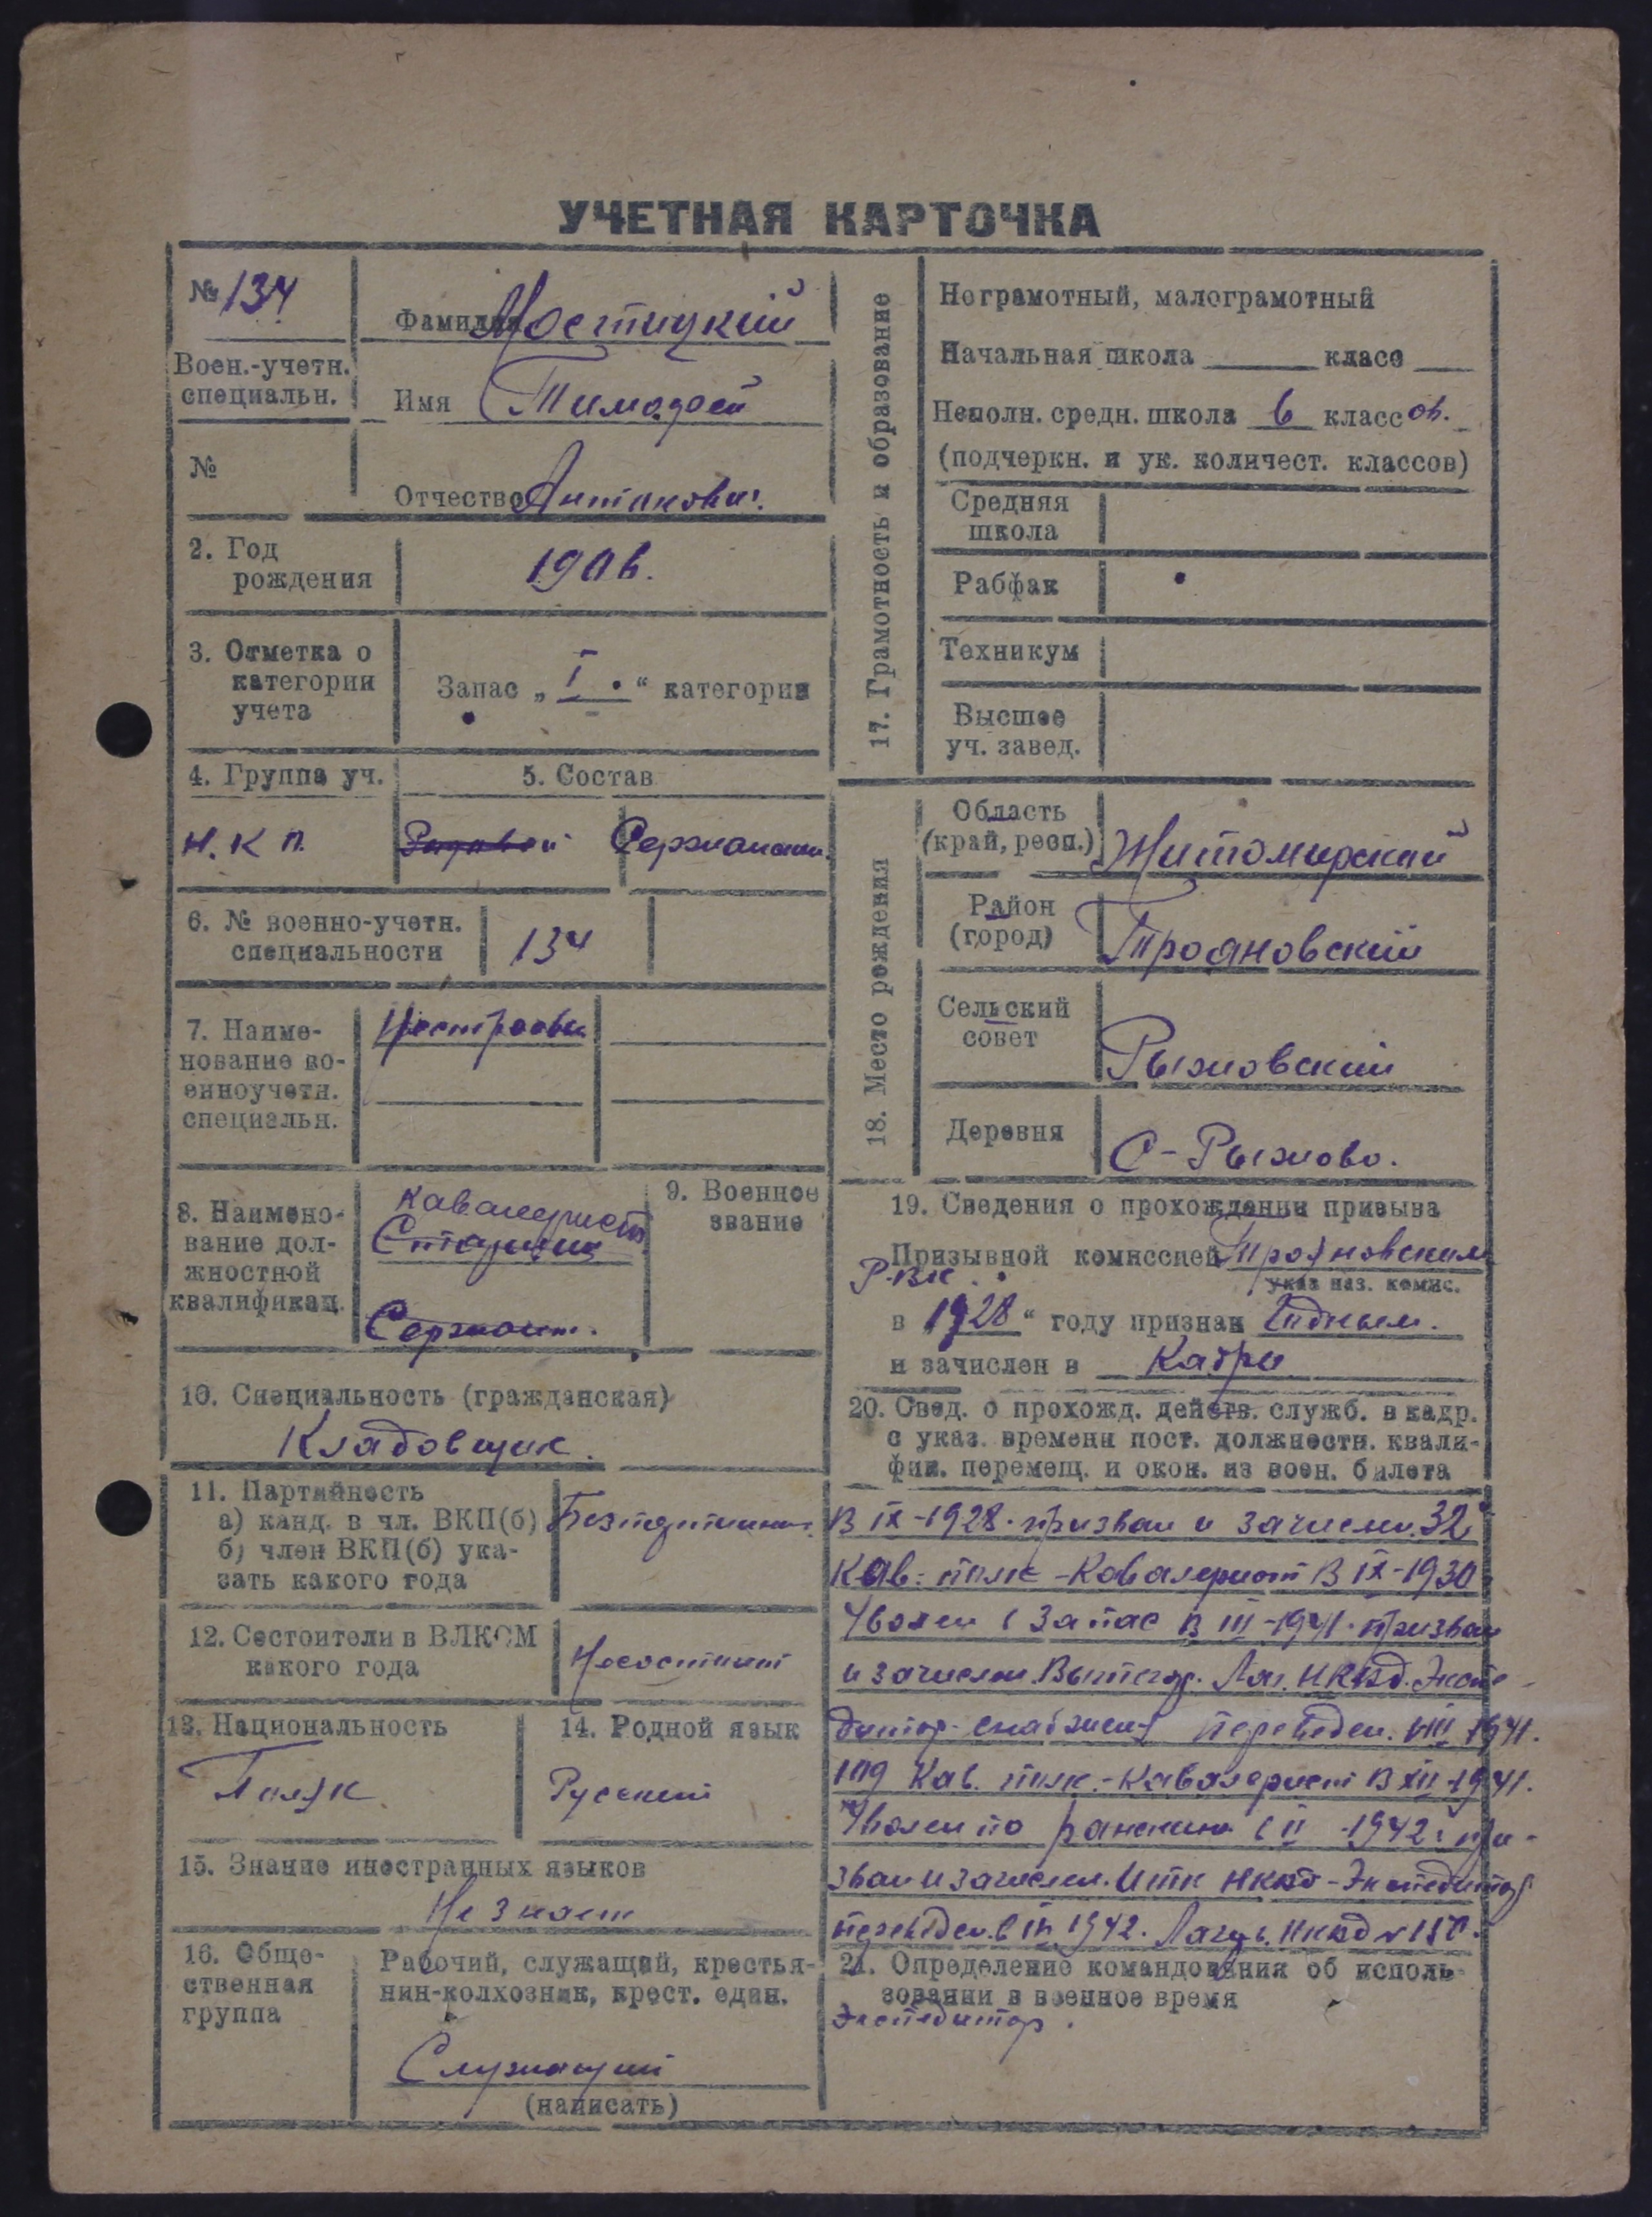 УЧЕТНАЯ КАРТОЧКА
№ 134
Фамилия Мостицкий
Воен.-учетн.
специальн.
Имя Тимофей
№
Отчество Антонович.
2. Год
рождения
1906.
3. Отметка о
категории
учета
Запас „ I “ категории
4. Группа уч.
5. Состав
Н.К П.
Рядовой Сержантск.
6. № военно-учетн.
специальности
134
7. Наиме-
нование во-
енноучетн.
специальн.
8. Наимено-
вание дол-
жностной
квалификац.
Кавалерист
Сержант.
9. Военное
звание
10. Специальность (гражданская)
Кладовщик.
11. Партийность
а) канд. в чл. ВКП(б)
б) член ВКП(б) ука-
зать какого года
Безпартийн.
12. Состоит ли в ВЛКСМ
какого года
Несостоит
13. Национальность
Поляк
14. Родной язык
Русский
15. Знание иностранных языков
Не знает
16. Обще-
ственная
группа
Рабочий, служащий, крестья-
нин-колхозник, крест. един.
Служащий
(написать)
17. Грамотность и образование
Неграмотный, малограмотный
Начальная школа класс
Неполн. средн. школа 6 классов.
(подчеркн. и ук. количест. классов)
Средняя
школа
Рабфак
Техникум
Высшее
уч. завед.
18. Место рождения
Область
(край, респ.)
Житомирский
Район
(город)
Трояновский
Сельский
совет
Рыжовский
Деревня
С-Рыжово.
19. Сведения о прохождении призыва
Призывной комиссией Трояновским
РВК
указ наз. комис.
в 1928 “ году признан Годным.
и зачислен в Кадры
20. Свед. о прохожд. действ. служб. в кадр.
с указ. времени пост. должностн. квали-
фик. перемещ. и окон. из воен. билета
В IX-1928. призван и зачислен. 32
Кав. полк - Кавалерист В IX-1930
Уволен в Запас В III-1941. призван
и зачислен Вытегор. Лаг. НКВД. Экспе
дитор-снабжен переведен. VIII 1941.
109 Кав. полк.-Кавалерист В XII-1941.
Уволен по ранению в II-1942. при-
зван и зачислен. ИТК НКВД-Экспедитор
переведен. в 1942. Лагерь. НКВД № 150.
21. Определение командования об исполь-
зовании в военное время
Экспедитор.